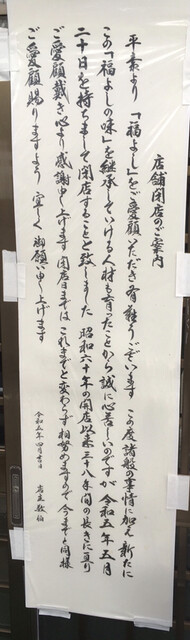 店舗閉店のご案内
平素より 「福よし」をご愛顧いただき有難うございます この度諸般の事情に加え 新たに
この「福よしの味」を継承していける人材も育ったことから誠に心苦しいのですが 令和五年五月
二十日を持ちまして閉店することと致しました 昭和六十年の開店以来三十八年間の長きに亘り
ご愛顧戴き心より感謝申し上げます 閉店日まではこれまでと変わらず相努めますので 今までと同様
ご愛顧賜りますよう 宜しく御願い申し上げます
令和五年四月二十日
店主敬白